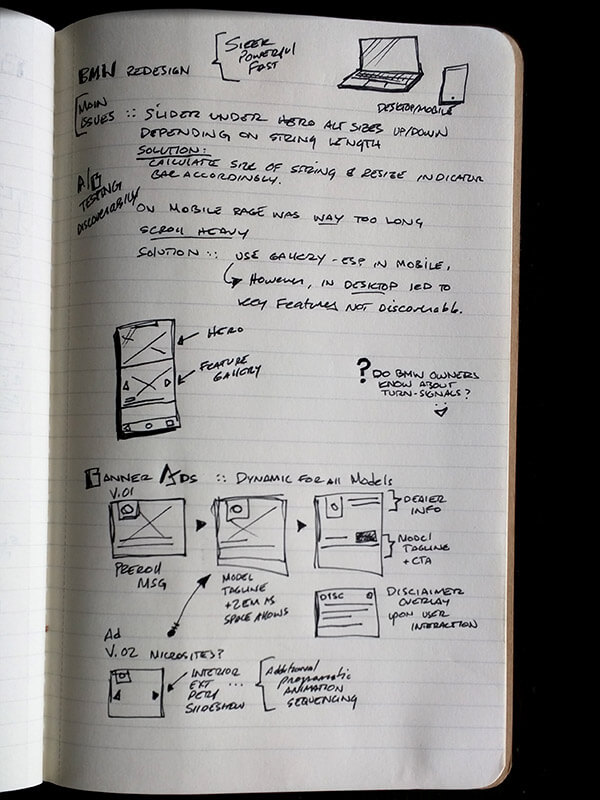 BMW REDESIGN
SLEEK
POWERFUL
FAST
DESKTOP/MOBILE
MAIN
ISSUES :: SLIDER UNDER HERO ALT SIZES UP/DOWN
DEPENDING ON STRING LENGTH
SOLUTION:
CALCULATE SIZE OF STRING & RESIZE INDICATOR
BAR ACCORDINGLY.
A/B
TESTING
DISCOVERABILITY
ON MOBILE PAGE WAS WAY TOO LONG
SCROLL HEAVY
SOLUTION :: USE GALLERY - ESP IN MOBILE,
HOWEVER, IN DESKTOP LED TO
KEY FEATURES NOT DISCOVERABLE.
HERO
FEATURE
GALLERY
? DO BMW OWNERS
KNOW ABOUT
TURN-SIGNALS?
BANNER ADS :: DYNAMIC FOR ALL MODELS
V.01
PREROLL
MSG
MODEL
TAGLINE
+ZEM AS
SPACE ALLOWS
DEALER
INFO
MODEL
TAGLINE
+ CTA
DISC
DISCLAIMER
OVERLAY
UPON USER
INTERACTION
Ad
V.02 MICROSITES?
INTERIOR
EXT ...
PERF
SLIDESHOW
Additional
Programatic
ANIMATION
SEQUENCING